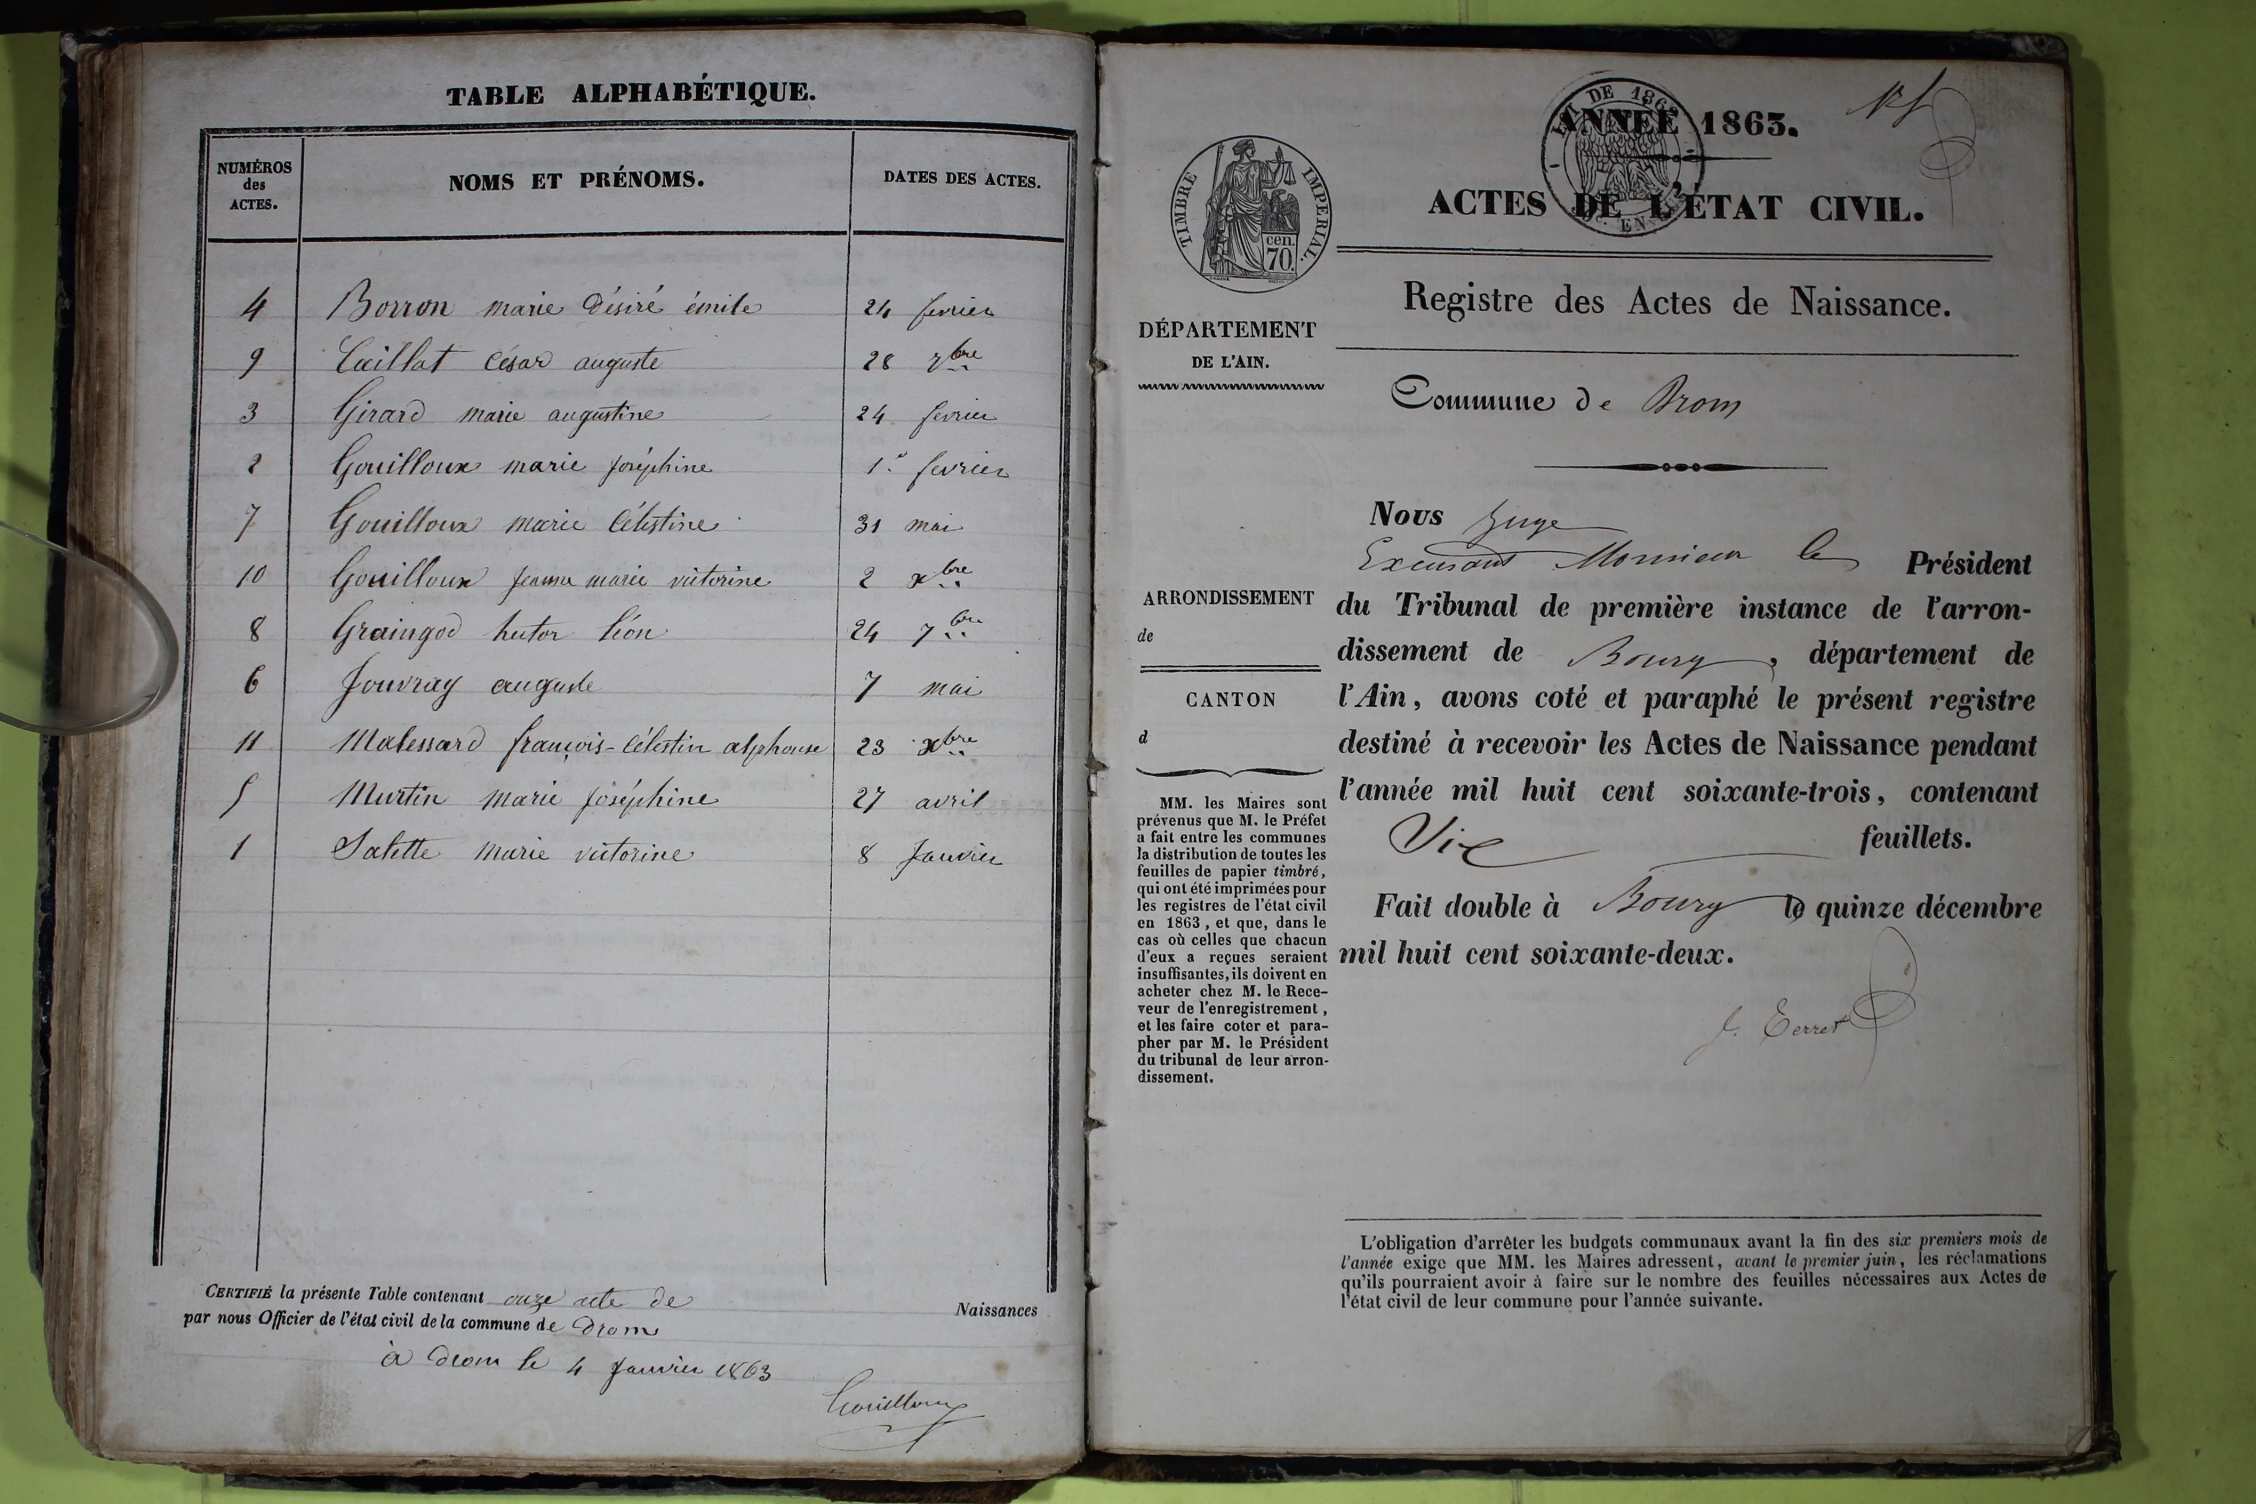 TABLE ALPHABÉTIQUE.
NUMÉROS des ACTES. NOMS ET PRÉNOMS. DATES DES ACTES.
4 Borron marie Désiré émile 24 fevrier
9 Caillat César auguste 28 9bre
3 Girard marie augustine 24 fevrier
2 Gouilloux marie joséphine 1er fevrier
7 Gouilloux marie Célestine 31 mai
10 Gouilloux jeanne marie victorine 2 xbre
8 Graingod hector léon 24 7bre
6 Jouvray auguste 7 mai
11 Malessard françois-Célestin alphonse 23 xbre
5 Murtin marie joséphine 27 avril
1 Salette marie victorine 8 Janvier
CERTIFIÉ la présente Table contenant onze acte de Naissances
par nous Officier de l'état civil de la commune de Drom
à Drom le 4 Janvier 1863
Gouilloux
TIMBRE IMPERIAL.
cen.
70.
LOI DE 1862
ANNÉE 1863.
ACTES DE L'ÉTAT CIVIL.
Registre des Actes de Naissance.
DÉPARTEMENT
DE L'AIN.
Commune de Drom
Nous Juge
Excusant Monsieur le Président
ARRONDISSEMENT
de
CANTON
d
du Tribunal de première instance de l'arron-
dissement de Bourg, département de
l'Ain, avons coté et paraphé le présent registre
destiné à recevoir les Actes de Naissance pendant
l'année mil huit cent soixante-trois, contenant
Six feuillets.
Fait double à Bourg le quinze décembre
mil huit cent soixante-deux.
MM. les Maires sont
prévenus que M. le Préfet
a fait entre les communes
la distribution de toutes les
feuilles de papier timbré,
qui ont été imprimées pour
les registres de l'état civil
en 1863, et que, dans le
cas où celles que chacun
d'eux a reçues seraient
insuffisantes, ils doivent en
acheter chez M. le Rece-
veur de l'enregistrement,
et les faire coter et para-
pher par M. le Président
du tribunal de leur arron-
dissement.
L'obligation d'arrêter les budgets communaux avant la fin des six premiers mois de
l'année exige que MM. les Maires adressent, avant le premier juin, les réclamations
qu'ils pourraient avoir à faire sur le nombre des feuilles nécessaires aux Actes de
l'état civil de leur commune pour l'année suivante.